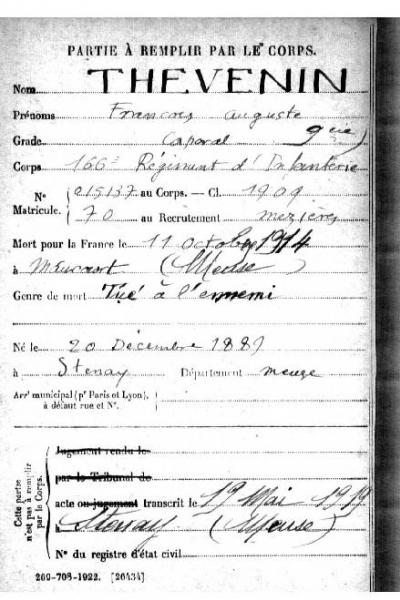 PARTIE À REMPLIR PAR LE CORPS.
Nom THÉVENIN
Prénoms François Auguste
Grade Caporal
Corps 166e Régiment d'Infanterie
N° Matricule. 015137 au Corps. — Cl. 1909
70 au Recrutement Mezières
Mort pour la France le 11 octobre 1914
à (Meuse)
Genre de mort Tué à l'ennemi
Né le 20 Décembre 1889
à Stenay Département Meuze
Arrt municipal (pr Paris et Lyon), à défaut rue et N°.
Cette partie n'est pas à remplir par le Corps.
Jugement rendu le
par le Tribunal de
acte ou jugement transcrit le 19 Mai 1919
à Stenay (Meuse)
N° du registre d'état civil
269-708-1922. [26434]